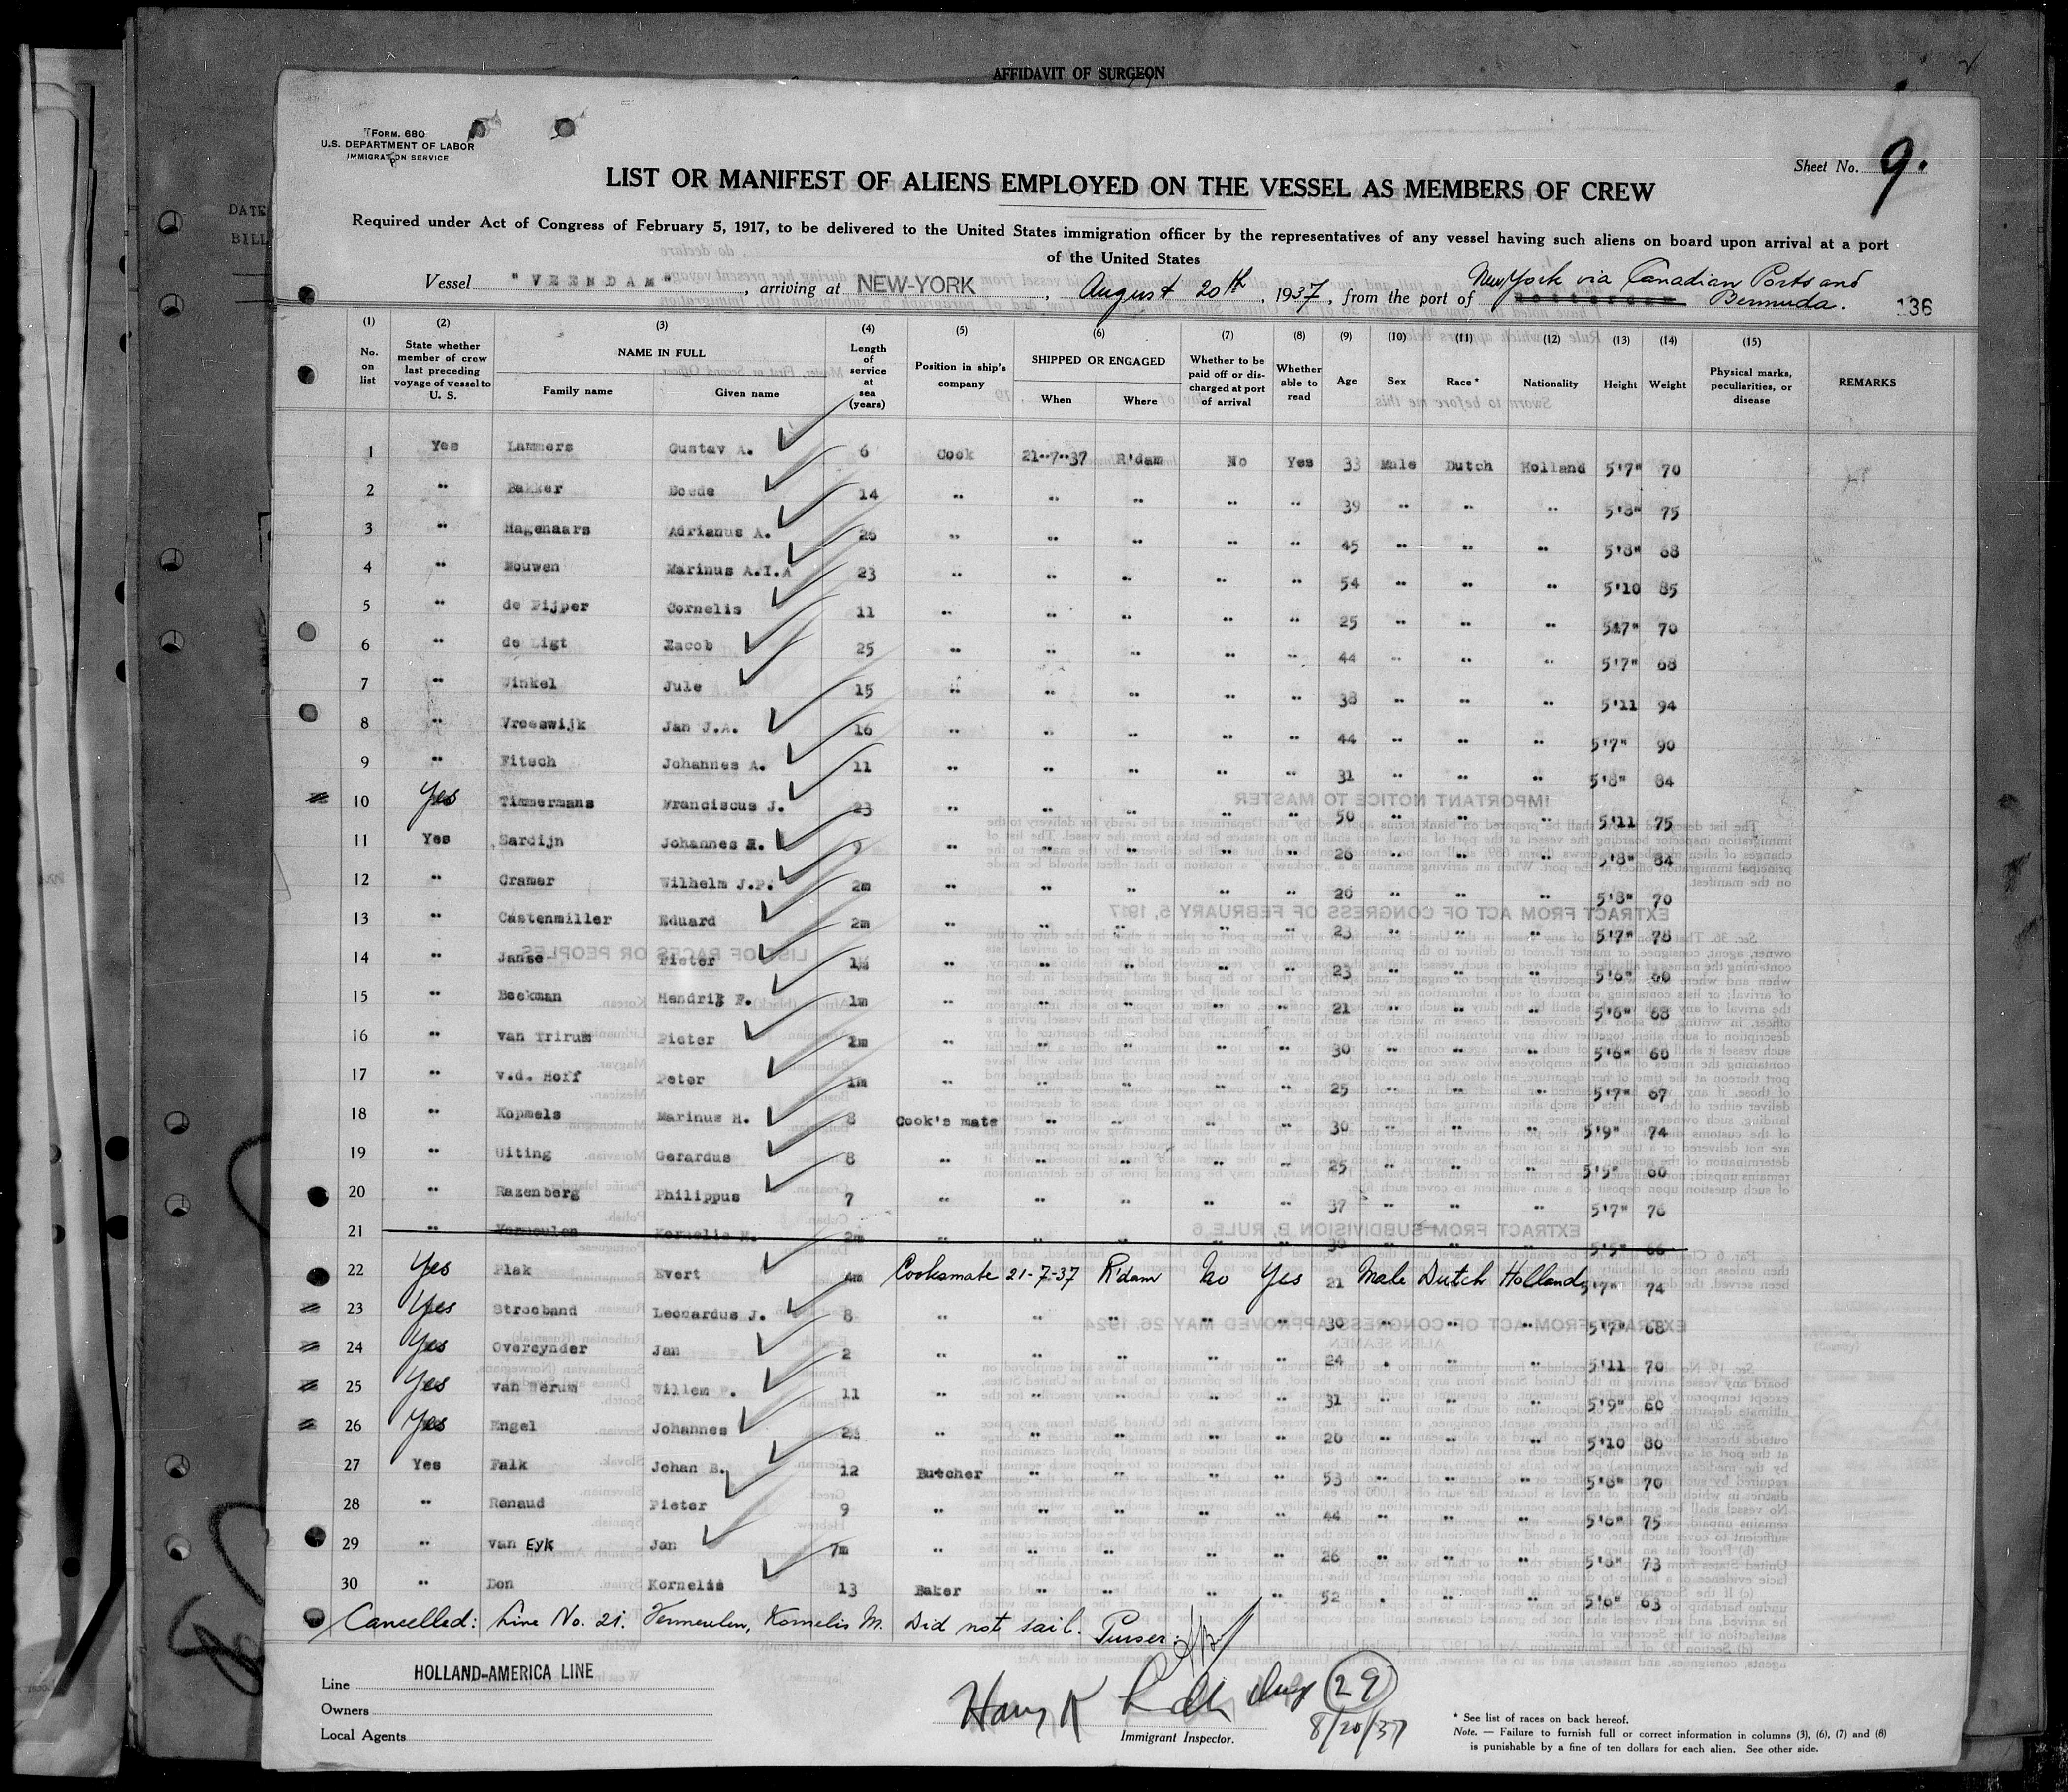 AFFIDAVIT OF SURGEON
FORM. 680
U.S. DEPARTMENT OF LABOR
IMMIGRATION SERVICE
DATE
BILL
Sheet No. 9.
LIST OR MANIFEST OF ALIENS EMPLOYED ON THE VESSEL AS MEMBERS OF CREW
Required under Act of Congress of February 5, 1917, to be delivered to the United States immigration officer by the representatives of any vessel having such aliens on board upon arrival at a port
of the United States
Vessel "VEENDAM", arriving at NEW-YORK, August 20th, 1937, from the port of New York via Canadian Ports and Bermuda.
136
(1) (2) (3) (4) (5) (6) (7) (8) (9) (10) (11) (12) (13) (14) (15)
No. on list | State whether member of crew last preceding voyage of vessel to U. S. | NAME IN FULL Family name Given name | Length of service at sea (years) | Position in ship's company | SHIPPED OR ENGAGED When Where | Whether to be paid off or discharged at port of arrival | Whether able to read | Age | Sex | Race * | Nationality | Height | Weight | Physical marks, peculiarities, or disease | REMARKS
1 Yes Lammers Gustav A. 6 Cook 21-7-37 R'dam No Yes 33 Male Dutch Holland 5'7" 70
2 " Bakker Boede 14 " " " " " 39 " " " 5'8" 75
3 " Hagenaars Adrianus A. 26 " " " " " 45 " " " 5'8" 68
4 " Nouwen Marinus A.I.A 23 " " " " " 54 " " " 5'10 85
5 " de Pijper Cornelis 11 " " " " " 25 " " " 5'7" 70
6 " de Ligt Zacob 25 " " " " " 44 " " " 5'7" 68
7 " Winkel Jule 15 " " " " " 38 " " " 5'11 94
8 " Vreeswijk Jan J.A. 16 " " " " " 44 " " " 5'7" 90
9 " Fitsch Johannes A. 11 " " " " " 31 " " " 5'8" 84
10 Yes Timmermans Franciscus J. 23 " " " " " 50 " " " 5'11 75
11 Yes Sardijn Johannes H. 9 " " " " " 26 " " " 5'8" 84
12 " Cramer Wilhelm J.P. 2m " " " " " 26 " " " 5'8" 70
13 " Castenmiller Eduard 2m " " " " " 23 " " " 5'7" 78
14 " Janse Pieter 1½ " " " " " 23 " " " 5'6" 60
15 " Beekman Hendrik F. 1m " " " " " 21 " " " 5'6" 68
16 " van Trirum Pieter 1m " " " " " 30 " " " 5'6" 60
17 " v.d. Hoff Peter 1m " " " " " 25 " " " 5'7" 67
18 " Kopmels Marinus H. 8 Cook's mate " " " " 30 " " " 5'9" 74
19 " Uiting Gerardus 8 " " " " " 25 " " " 5'5" 60
20 " Razenberg Philippus 7 " " " " " 37 " " " 5'7" 76
21 " Vermeulen Kornelis M. 2m " " " " " 30 " " " 5'5" 66
22 Yes Plak Evert 4m Cooksmate 21-7-37 R'dam No Yes 21 Male Dutch Holland 5'7" 74
23 Yes Stroeband Leonardus J. 8 " " " " " 30 " " " 5'7" 68
24 Yes Overeynder Jan 2 " " " " " 24 " " " 5'11 70
25 Yes van Werum Willem P. 11 " " " " " 31 " " " 5'9" 60
26 Yes Engel Johannes 2½ " " " " " 20 " " " 5'10 80
27 Yes Falk Johan B. 12 Butcher " " " " 53 " " " 5'8" 70
28 " Renaud Pieter 9 " " " " " 44 " " " 5'6" 75
29 " van Eyk Jan 7m " " " " " 26 " " " 5'8" 73
30 " Don Kornelis 13 Baker " " " " 52 " " " 5'6" 63
Cancelled: Line No. 21. Vermeulen, Kornelis M. Did not sail. Purser:
Line HOLLAND-AMERICA LINE
Owners
Local Agents
Harry K 29
8/20/37
Immigrant Inspector.
* See list of races on back hereof.
Note. — Failure to furnish full or correct information in columns (3), (6), (7) and (8)
is punishable by a fine of ten dollars for each alien. See other side.